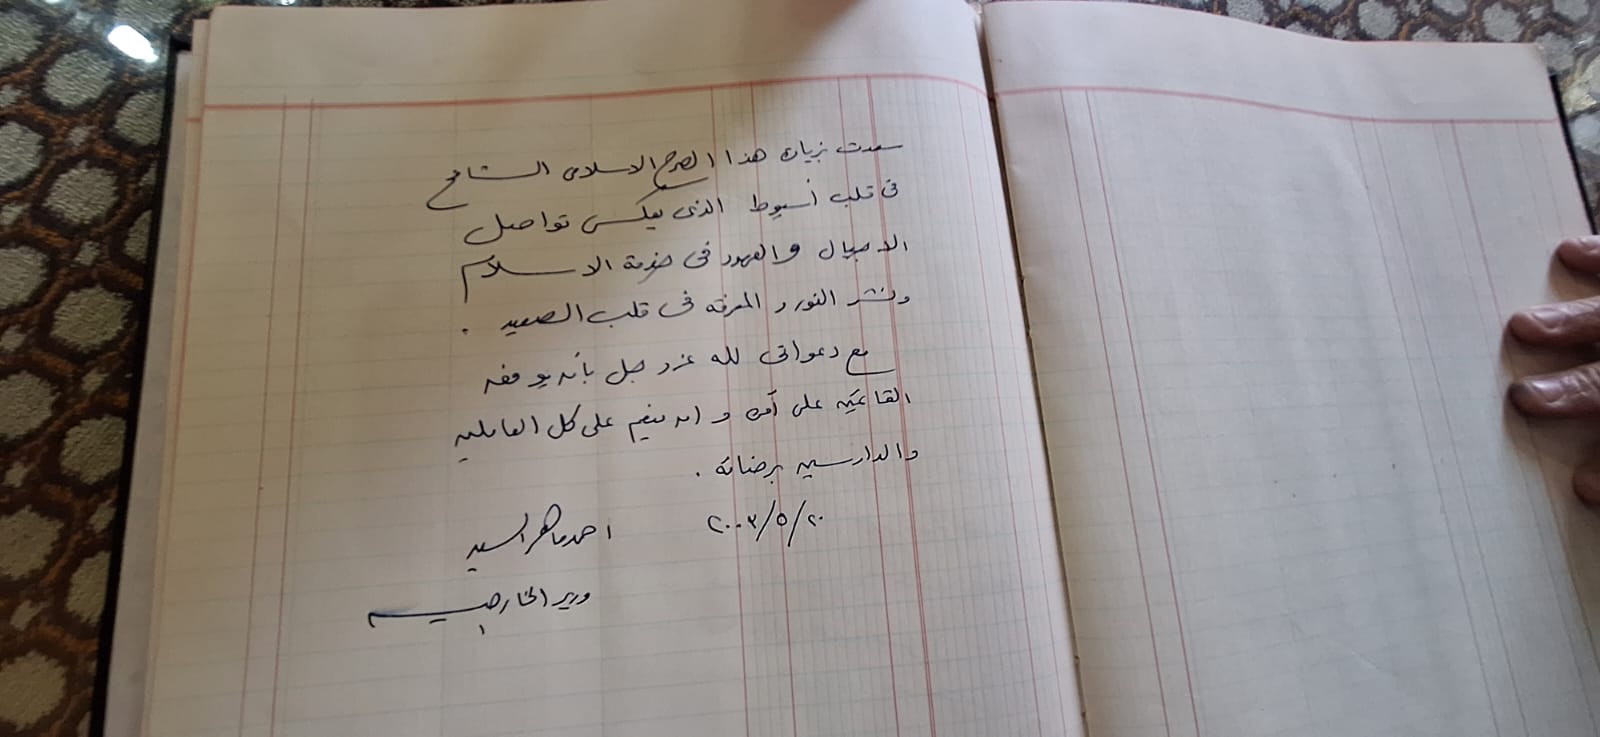 سعدت بزيارة هذا الصرح الاسلامى الشامخ
فى قلب أسيوط الذى يعكس تواصل
الاجيال والعهود فى خدمة الاسلام
ونشر النور والمعرفة فى قلب الصعيد .
مع دعواتى لله عز وجل بأن يوفق
القائمين على أمره وان ينعم على كل العاملين
والدارسين برضائه .
٢٠٠٣/٥/٢٠
احمد ماهر السيد
وزير الخارجية